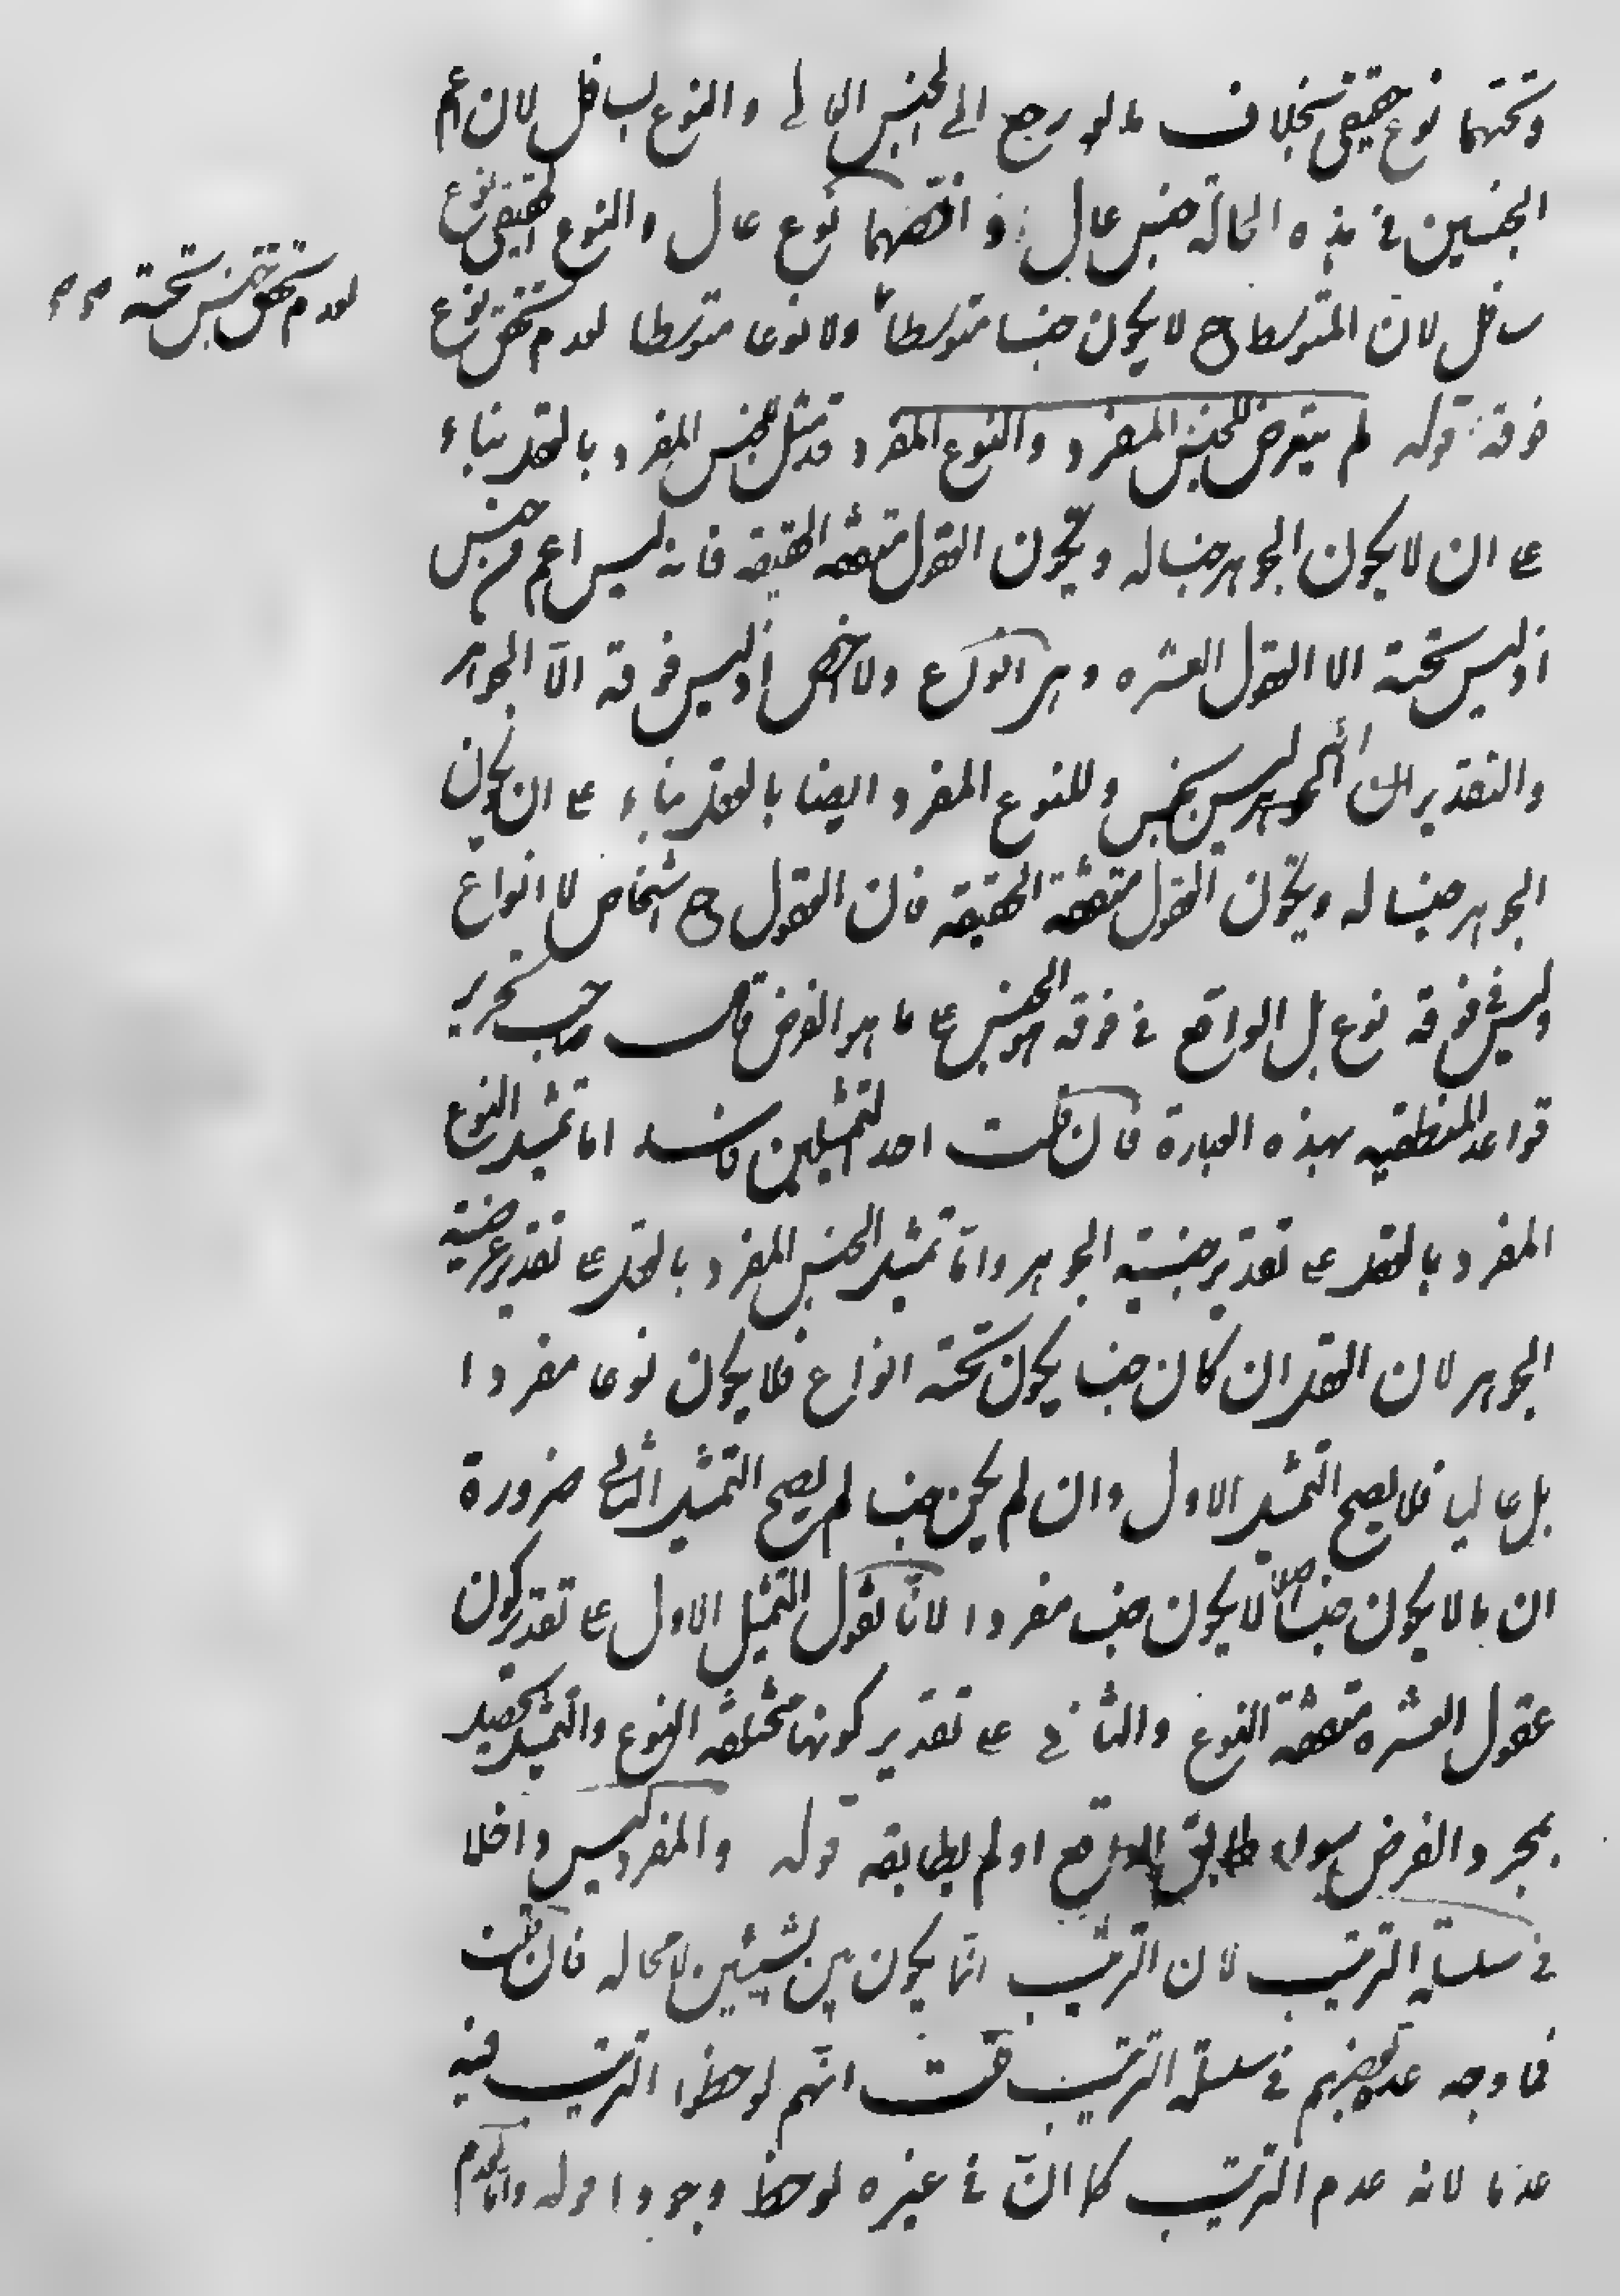 وتحتهما نوع حقيقى بخلاف ما لو رجع الى الجنس العالى والنوع السافل لان اعم
الجنسين فى هذه الحالة جنس عال واخصهما نوع عال والنوع الحقيقى نوع
سافل لان المتوسط ح لا يكون جنسا متوسطا ولا نوعا متوسطا لعدم تحقق نوع
لعدم تحقق جنس تحته
فوقه قوله لم يتعرض للجنس المفرد والنوع المفرد قد مثل الجنس المفرد بالعقل بناء
على ان لا يكون الجوهر جنسا له ويكون العقول متفقة الحقيقة فانه ليس اعم من جنس
اذ ليس تحته الا العقول العشره وهى انواع ولا اخص اذ ليس فوقه الا الجوهر
والتقدير ان الجوهر ليس بجنس وللنوع المفرد ايضا بالعقل بناء على ان يكون
الجوهر جنسا له ويكون العقول متفقة الحقيقه فان العقول ح اشخاص لا انواع
وليس فوقه نوع بل الواقع فى فوقه هو الجنس على ما هو الفرض قال صاحب تحرير
قواعد المنطقيه بهذه العبارة فان قلت احد التمثيلين فاسد اما تمثيل النوع
المفرد بالعقل على تقدير جنسية الجوهر واما تمثيل الجنس المفرد بالعقل على تقدير عرضية
الجوهر لان العقل ان كان جنسا يكون تحته انواع فلا يكون نوعا مفردا
بل عاليا فلا يصح التمثيل الاول وان لم يكن جنسا لم يصح التمثيل الثانى ضرورة
ان ما لا يكون جنسا اصلا لا يكون جنسا مفردا لانا نقول التمثيل الاول على تقدير كون
عقول العشره متفقة النوع والثانى على تقدير كونها مختلفة النوع والتمثيل يحصل
بمجرد الفرض سواء طابق الواقع او لم يطابقه قوله والمفرد ليس داخلا
فى سلسلة الترتيب لان الترتيب انما يكون بين الشيئين لا محاله فان قلت
فما وجه عد بعضهم فى سلسلة الترتيب قلت انهم لوحظوا الترتيب فيه
عدما لانه عدم الترتيب كما ان فى غيره لوحظ وجودا قوله واما لعدم